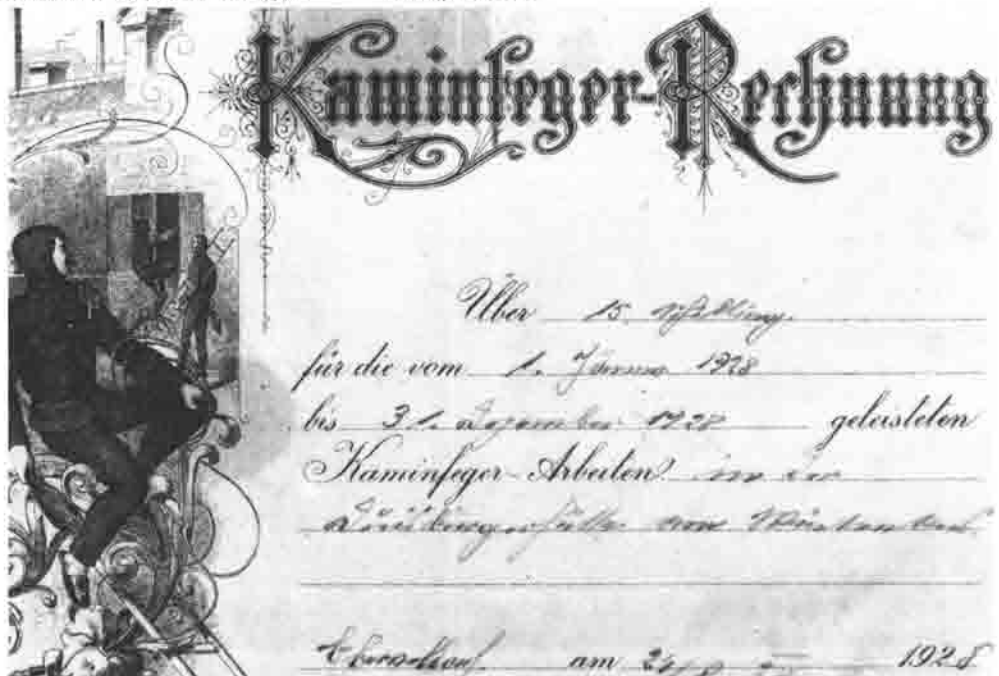 Kaminfeger-Rechnung
Über 15 Schilling
für die vom 1. Jänner 1928
bis 31. Dezember 1928 geleisteten
Kaminfeger-Arbeiten in der
von
am 1928